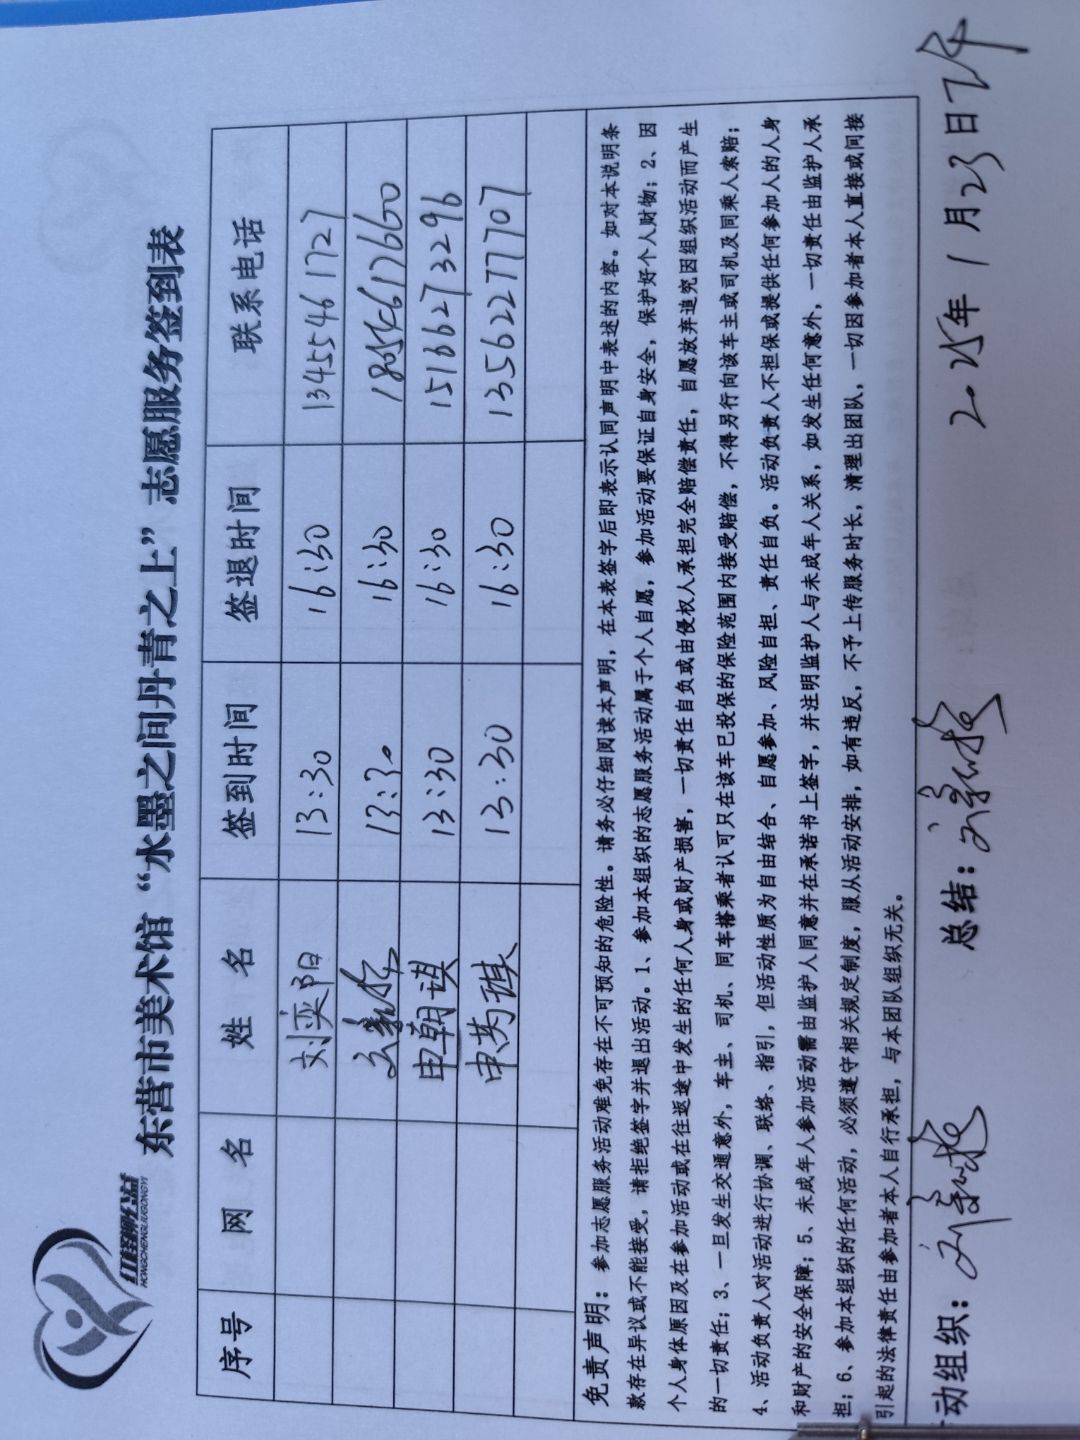 红橙柳公益
HONGCHENGLIUGONGYI
东营市美术馆“水墨之间丹青之上”志愿服务签到表
序号 网 名 姓 名 签到时间 签退时间 联系电话
刘奕阳 13:30 16:30 13455461727
13:30 16:30 18954617660
申朝琪 13:30 16:30 15166273296
申芮琪 13:30 16:30 13562277707
免责声明：参加志愿服务活动难免存在不可预知的危险性。请务必仔细阅读本声明，在本表签字后即表示认同声明中表述的内容。如对本说明条
款存在异议或不能接受，请拒绝签字并退出活动。1、参加本组织的志愿服务活动属于个人自愿，参加活动要保证自身安全，保护好个人财物；2、因
个人身体原因及在参加活动或在往返途中发生的任何人身或财产损害，一切责任自负或由侵权人承担完全赔偿责任，自愿放弃追究因组织活动而产生
的一切责任；3、一旦发生交通意外，车主、司机、同车搭乘者认可只在该车已投保的保险范围内接受赔偿，不得另行向该车主或司机及同乘人索赔；
4、活动负责人对活动进行协调、联络、指引，但活动性质为自由结合、自愿参加、风险自担、责任自负。活动负责人不担保或提供任何参加人的人身
和财产的安全保障；5、未成年人参加活动需由监护人同意并在承诺书上签字，并注明监护人与未成年人关系，如发生任何意外，一切责任由监护人承
担；6、参加本组织的任何活动，必须遵守相关规定制度，服从活动安排，如有违反，不予上传服务时长，清理出团队，一切因参加者本人直接或间接
引起的法律责任由参加者本人自行承担，与本团队组织无关。
动组织： 总结： 2025年1月23日